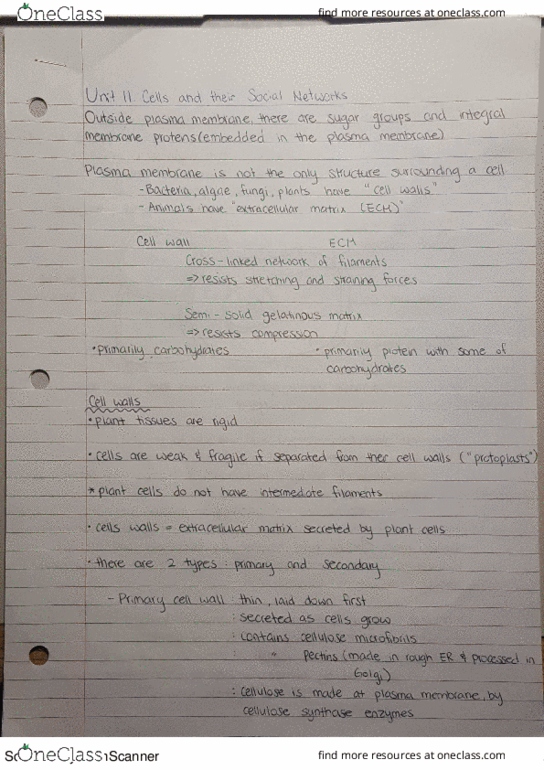 OneClass find more resources at oneclass.com
Unit 11 Cells and their Social Networks
Outside plasma membrane, there are sugar groups and integral
membrane protens (embedded in the plasma membrane)
Plasma membrane is not the only structure surrounding a cell
- Bacteria, algae, fungi, plants have "cell walls"
- Animals have "extracellular matrix (ECM)"
Cell wall ECM
Cross-linked network of filaments
=> resists stretching and straining forces
Semi-solid gelatinous matrix
=> resists compression
• primarily carbohydrates • primarily protein with some of
carbohydrates
Cell walls
• plant tissues are rigid
• cells are weak & fragile if separated from their cell walls ("protoplasts")
* plant cells do not have intermediate filaments
• cells walls = extracellular matrix secreted by plant cells
• there are 2 types : primary and secondary
- Primary cell wall : thin, laid down first
: secreted as cells grow
: contains cellulose microfibrils
: " Pectins (made in rough ER & processed in
Golgi)
: cellulose is made at plasma membrane, by
cellulose synthase enzymes
OneClass Scanner find more resources at oneclass.com